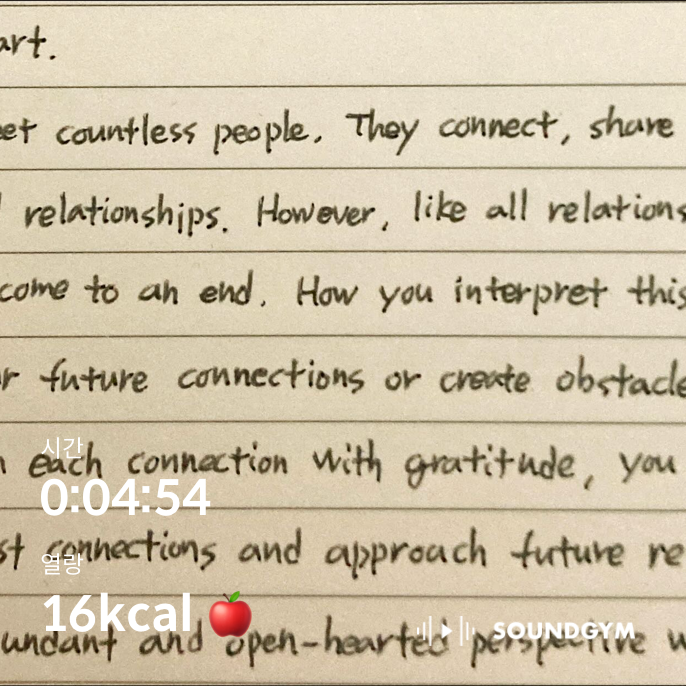 art.
et countless people. They connect, share
relationships. However, like all relations
come to an end. How you interpret this
r future connections or create obstacle
each connection with gratitude, you
시간
0:04:54
st connections and approach future re
열량
16kcal
undant and open-hearted perspective w
SOUNDGYM